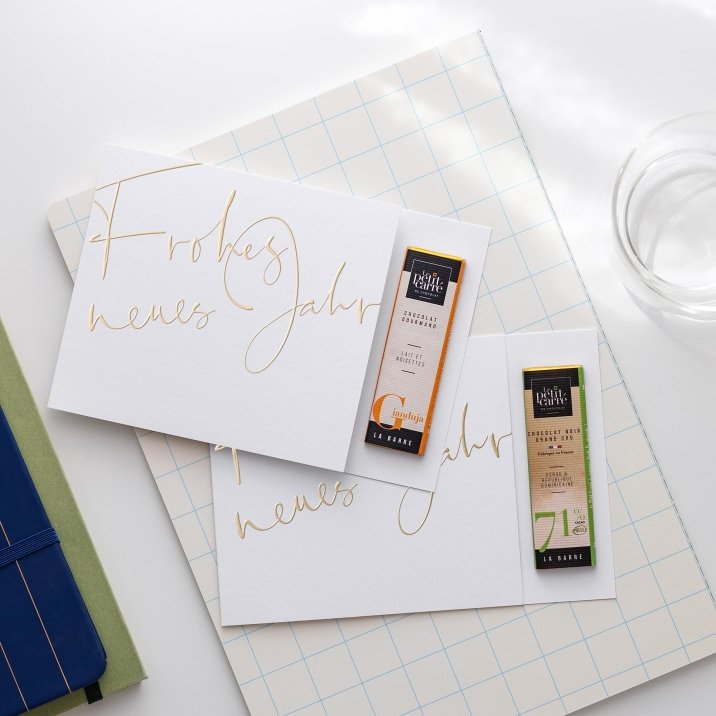 Frohes
neues Jahr
le
petit
carré
DE CHOCOLAT
CHOCOLAT
GOURMAND
LAIT ET
NOISETTES
Gianduja
LA BARRE
ahr
neues J
le
petit
carré
DE CHOCOLAT
CHOCOLAT NOIR
GRAND CRU
Fabriqué en France
PÉROU &
RÉPUBLIQUE
DOMINICAINE
71%
CACAO
LA BARRE